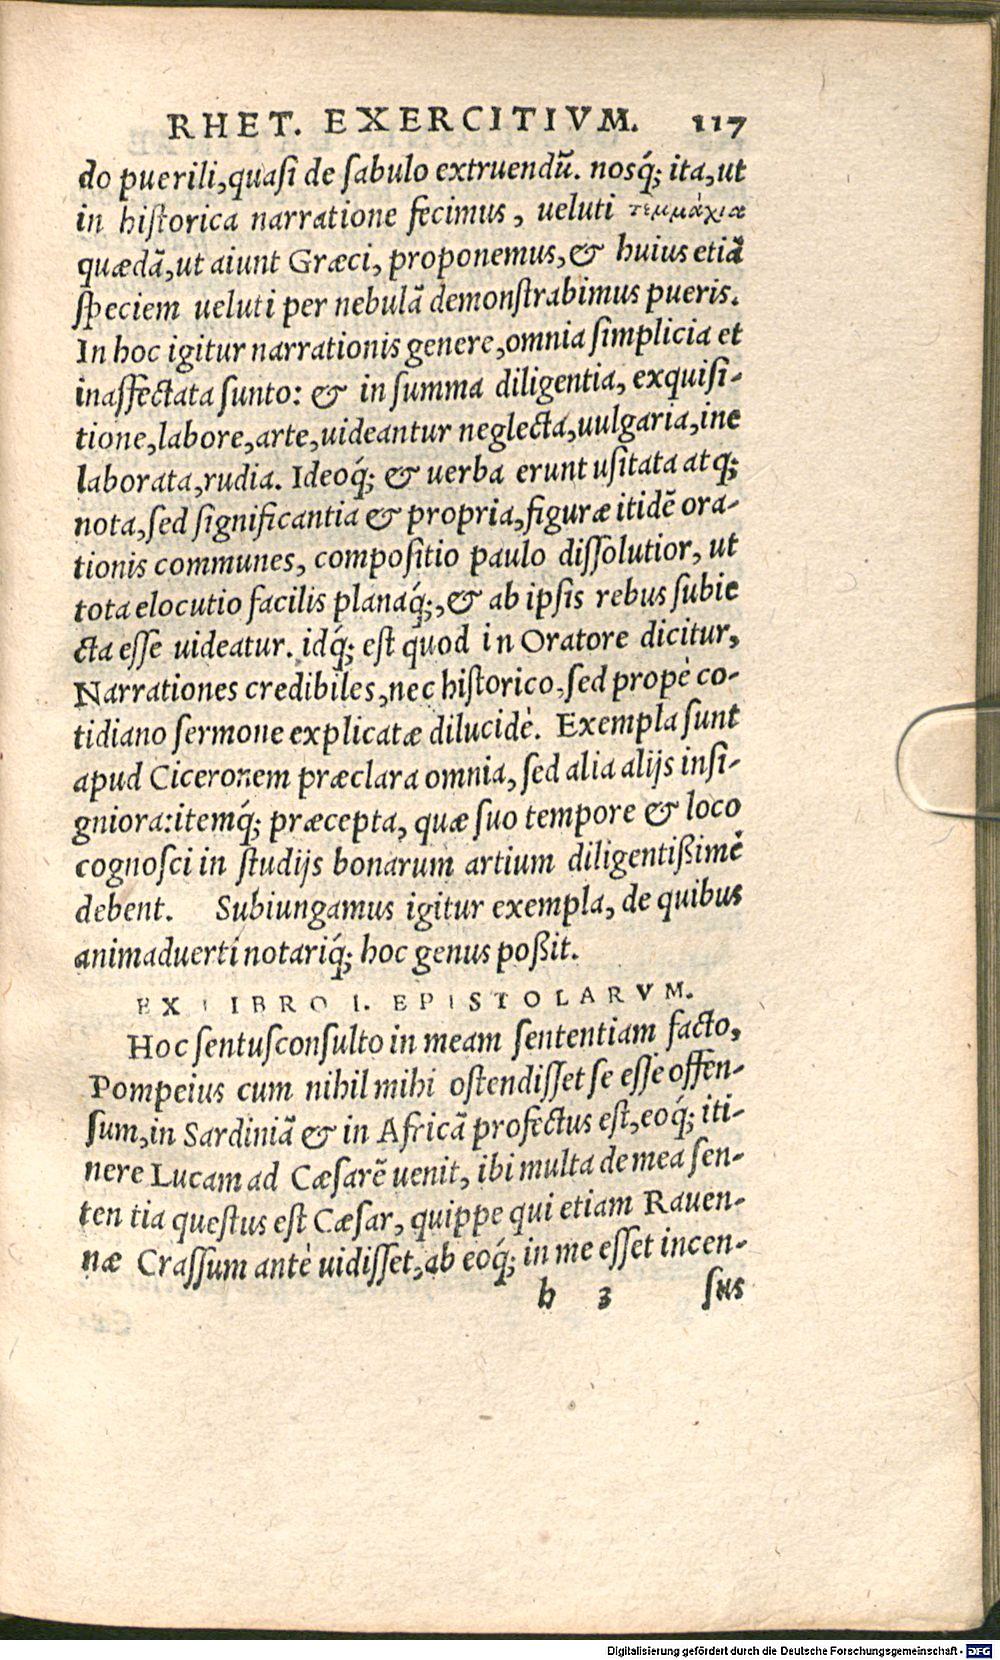 RHET. EXERCITIVM. 117
do puerili,quasi de sabulo extruendũ. nosq́; ita,ut
in historica narratione fecimus, ueluti τεμμάχια
quædã,ut aiunt Græci, proponemus,& huius etiã
speciem ueluti per nebulã demonstrabimus pueris.
In hoc igitur narrationis genere,omnia simplicia et
inaffectata sunto: & in summa diligentia, exquisi-
tione,labore,arte,uideantur neglecta,uulgaria,ine
laborata,rudia. Ideoq́; & uerba erunt usitata atq;
nota,sed significantia & propria,figuræ itidẽ ora-
tionis communes, compositio paulo dissolutior, ut
tota elocutio facilis planaq́;,& ab ipsis rebus subie
cta esse uideatur. idq́; est quod in Oratore dicitur,
Narrationes credibiles,nec historico,sed propè co-
tidiano sermone explicatæ dilucidè. Exempla sunt
apud Ciceronem præclara omnia, sed alia alijs insi-
gniora:itemq́; præcepta, quæ suo tempore & loco
cognosci in studijs bonarum artium diligentißimè
debent. Subiungamus igitur exempla, de quibus
animaduerti notariq́; hoc genus poßit.
EX LIBRO I. EPISTOLARVM.
Hoc sentusconsulto in meam sententiam facto,
Pompeius cum nihil mihi ostendisset se esse offen-
sum,in Sardiniã & in Africã profectus est,eoq́; iti-
nere Lucam ad Cæsarẽ uenit, ibi multa de mea sen-
ten tia questus est Cæsar, quippe qui etiam Rauen-
næ Crassum antè uidisset,ab eoq́; in me esset incen-
h 3 sus
Digitalisierung gefördert durch die Deutsche Forschungsgemeinschaft - DFG